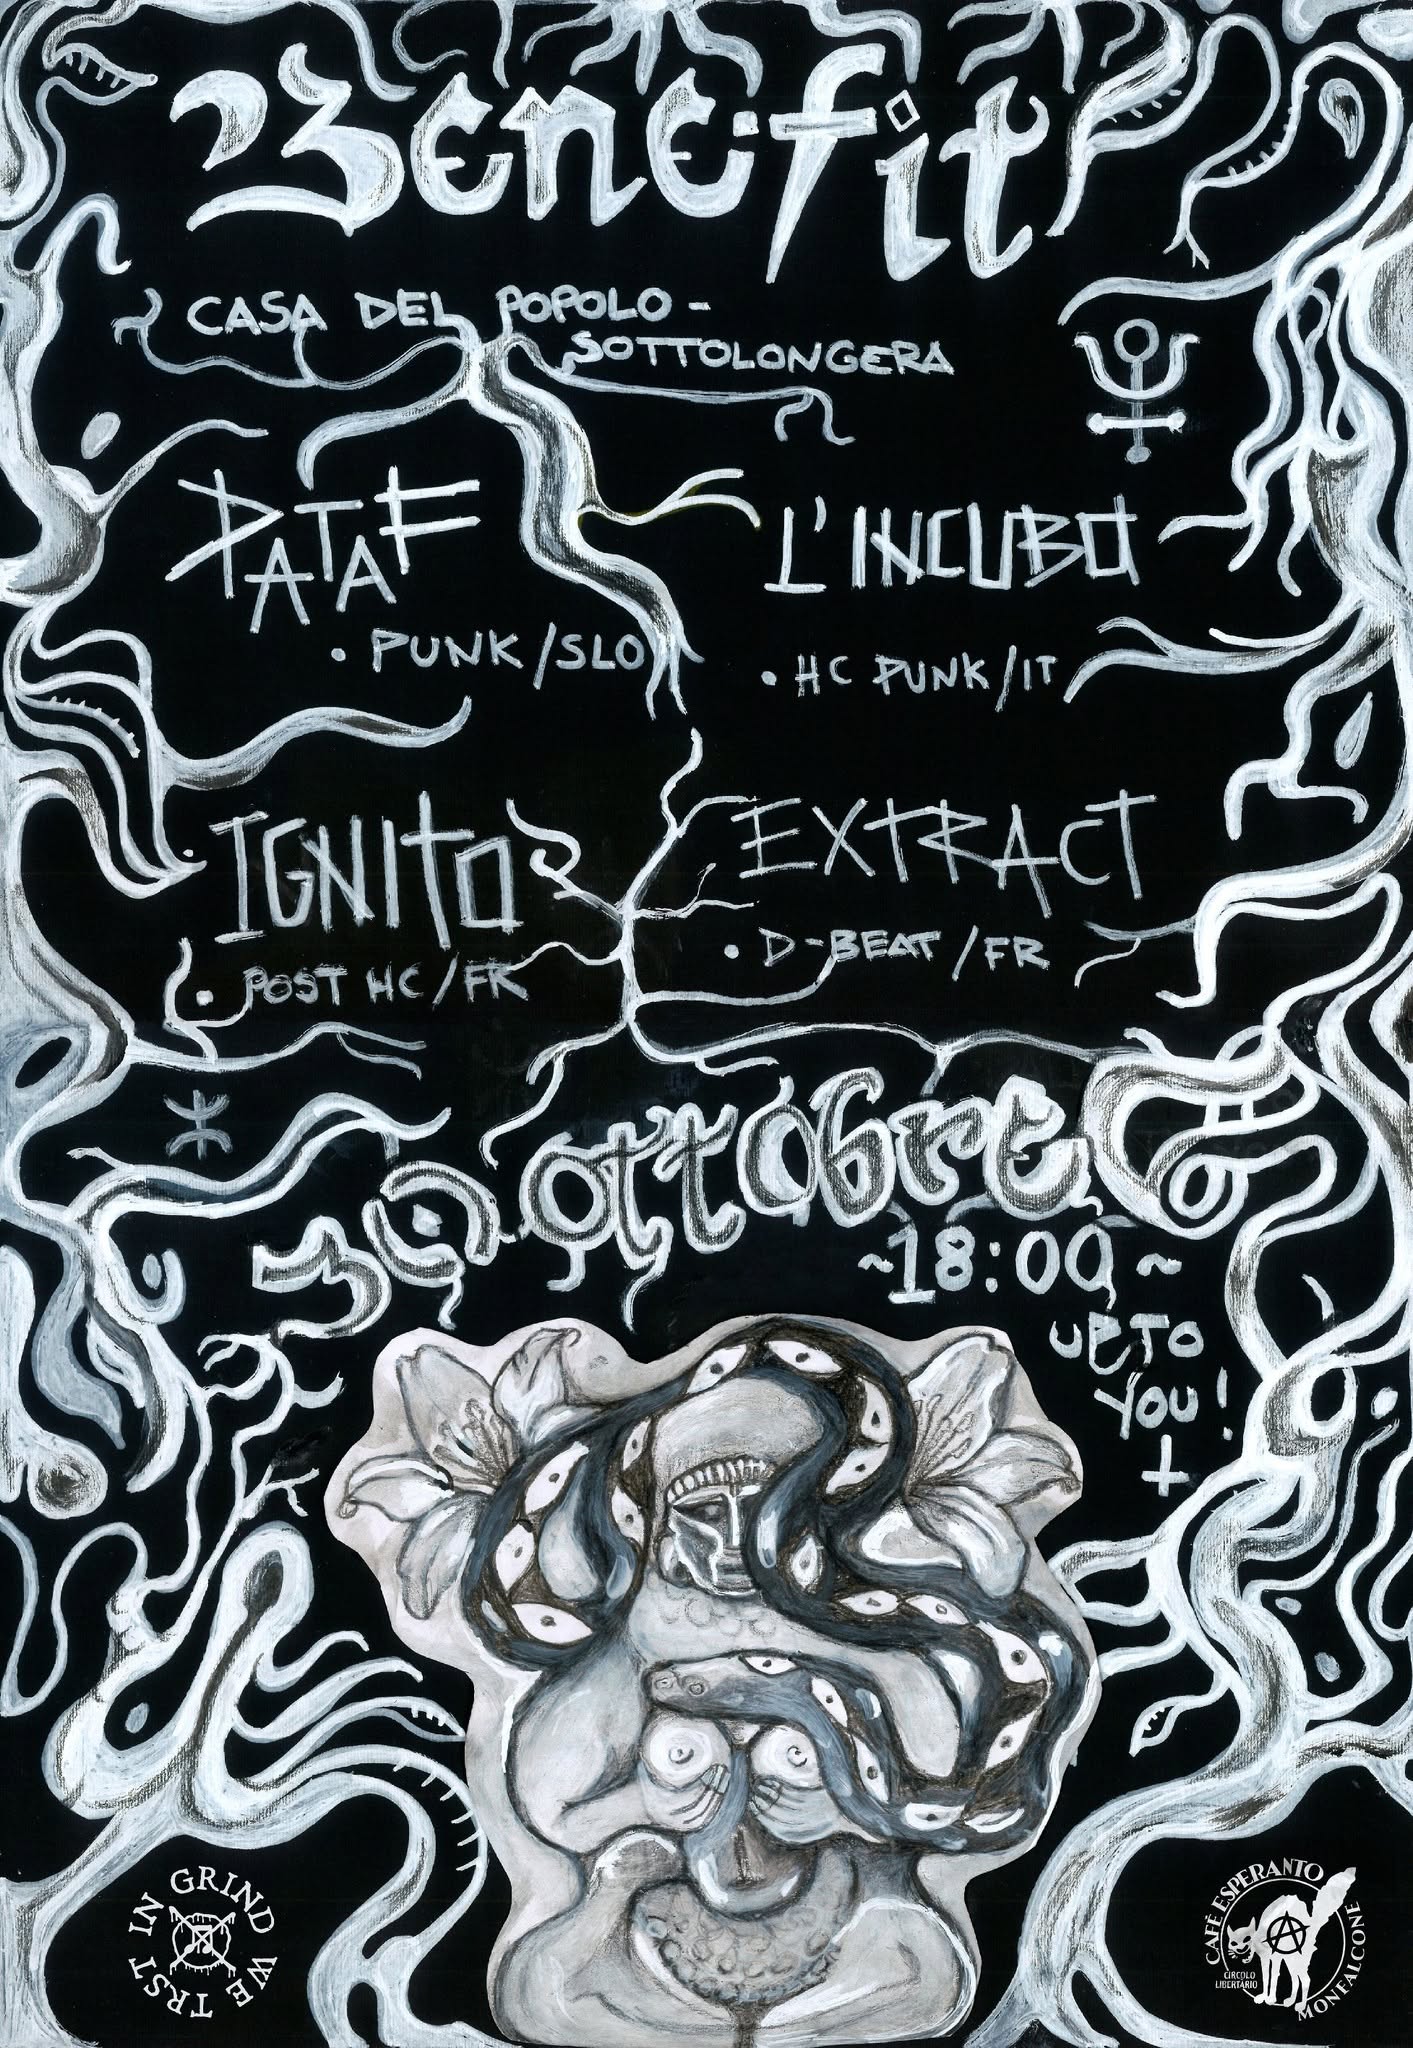 Benefit
CASA DEL POPOLO -
SOTTOLONGERA
PATAF
• PUNK/SLO
L'INCUBO
• HC PUNK/IT
IGNITO
• POST HC/FR
EXTRACT
• D-BEAT/FR
30 ottobre
~18:00~
UP TO
YOU!
IN GRIND WE TRST
CAFÈ ESPERANTO
CIRCOLO
LIBERTARIO
MONFALCONE